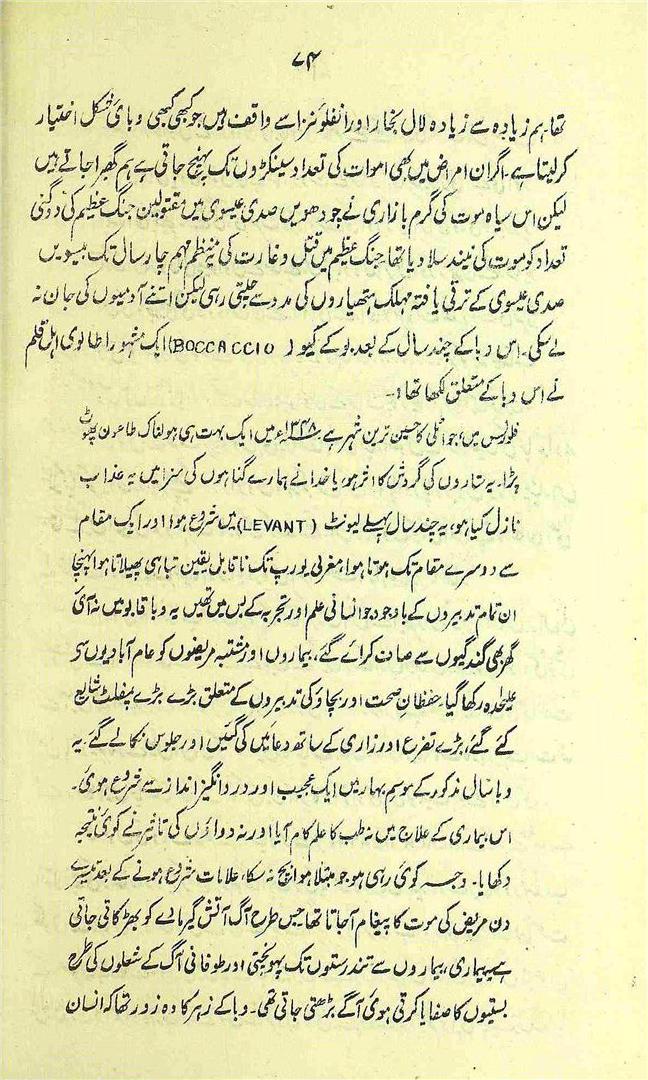 ۷۴
تھا۔ ہم زیادہ سے زیادہ لال بخار اور انفلوئنزا سے واقف ہیں جو کبھی کبھی وبائی شکل اختیار
کر لیتا ہے۔ اگر ان امراض میں بھی اموات کی تعداد سینکڑوں تک پہنچ جاتی ہے ہم گھبرا جاتے ہیں
لیکن اس سیاہ موت کی گرم بازاری نے چودھویں صدی عیسوی میں مقتولین جنگ عظیم کی دوگنی
تعداد کو موت کی نیند سلا دیا تھا جنگ عظیم میں قتل و غارت کی منظم مہم چار سال تک بیسویں
صدی عیسوی کے ترقی یافتہ مہلک ہتھیاروں کی مدد سے چلتی رہی لیکن اتنے آدمیوں کی جان نہ
لے سکی۔ اس وبا کے چند سال کے بعد بوکے کیو (BOCCACCIO) ایک مشہور اطالوی اہل قلم
نے اس وبا کے متعلق لکھا تھا:۔
فلورنس میں، جو اٹلی کا حسین ترین شہر ہے ۱۳۴۸ء میں ایک بہت ہی ہولناک طاعون پھوٹ
پڑا۔ یہ ستاروں کی گردش کا اثر ہو، یا خدا نے ہمارے گناہوں کی سزا میں یہ عذاب
نازل کیا ہو، یہ چند سال پہلے لیونٹ (LEVANT) میں شروع ہوا اور ایک مقام
سے دوسرے مقام تک ہوتا ہوا، مغربی یورپ تک ناقابل یقین تباہی پھیلاتا ہوا پہنچا
ان تمام تدبیروں کے باوجود جو انسانی علم اور تجربہ کے بس میں تھیں یہ وبا قابو میں نہ آئی
گھر بھی گندگیوں سے صاف کرائے گئے، بیماروں اور مشتبہ مریضوں کو عام آبادیوں سے
علیحدہ رکھا گیا۔ حفظان صحت اور بچاؤ کی تدبیروں کے متعلق بڑے بڑے پمفلٹ شایع
کئے گئے، بڑے تضرع اور زاری کے ساتھ دعائیں کی گئیں اور جلوس نکالے گئے۔ یہ
وبا سال مذکور کے موسم بہار میں ایک عجیب اور دردانگیز انداز سے شروع ہوئی۔
اس بیماری کے علاج میں نہ طب کا علم کام آیا اور نہ دواؤں کی تاثیر نے کوئی نتیجہ
دکھایا۔ وجہ کوئی رہی ہو جو مبتلا ہوا بچ نہ سکا، علامات شروع ہونے کے بعد تیسرے
دن مریض کی موت کا پیغام آجاتا تھا جس طرح آگ آتش گیر مادے کو بھڑکاتی جاتی
ہے یہ بیماری، بیماروں سے تندرستوں تک پہونچتی اور طوفانی آگ کے شعلوں کی طرح
بستیوں کا صفایا کرتی ہوئی آگے بڑھتی جاتی تھی۔ وبا کے زہر کا وہ زور تھا کہ انسان